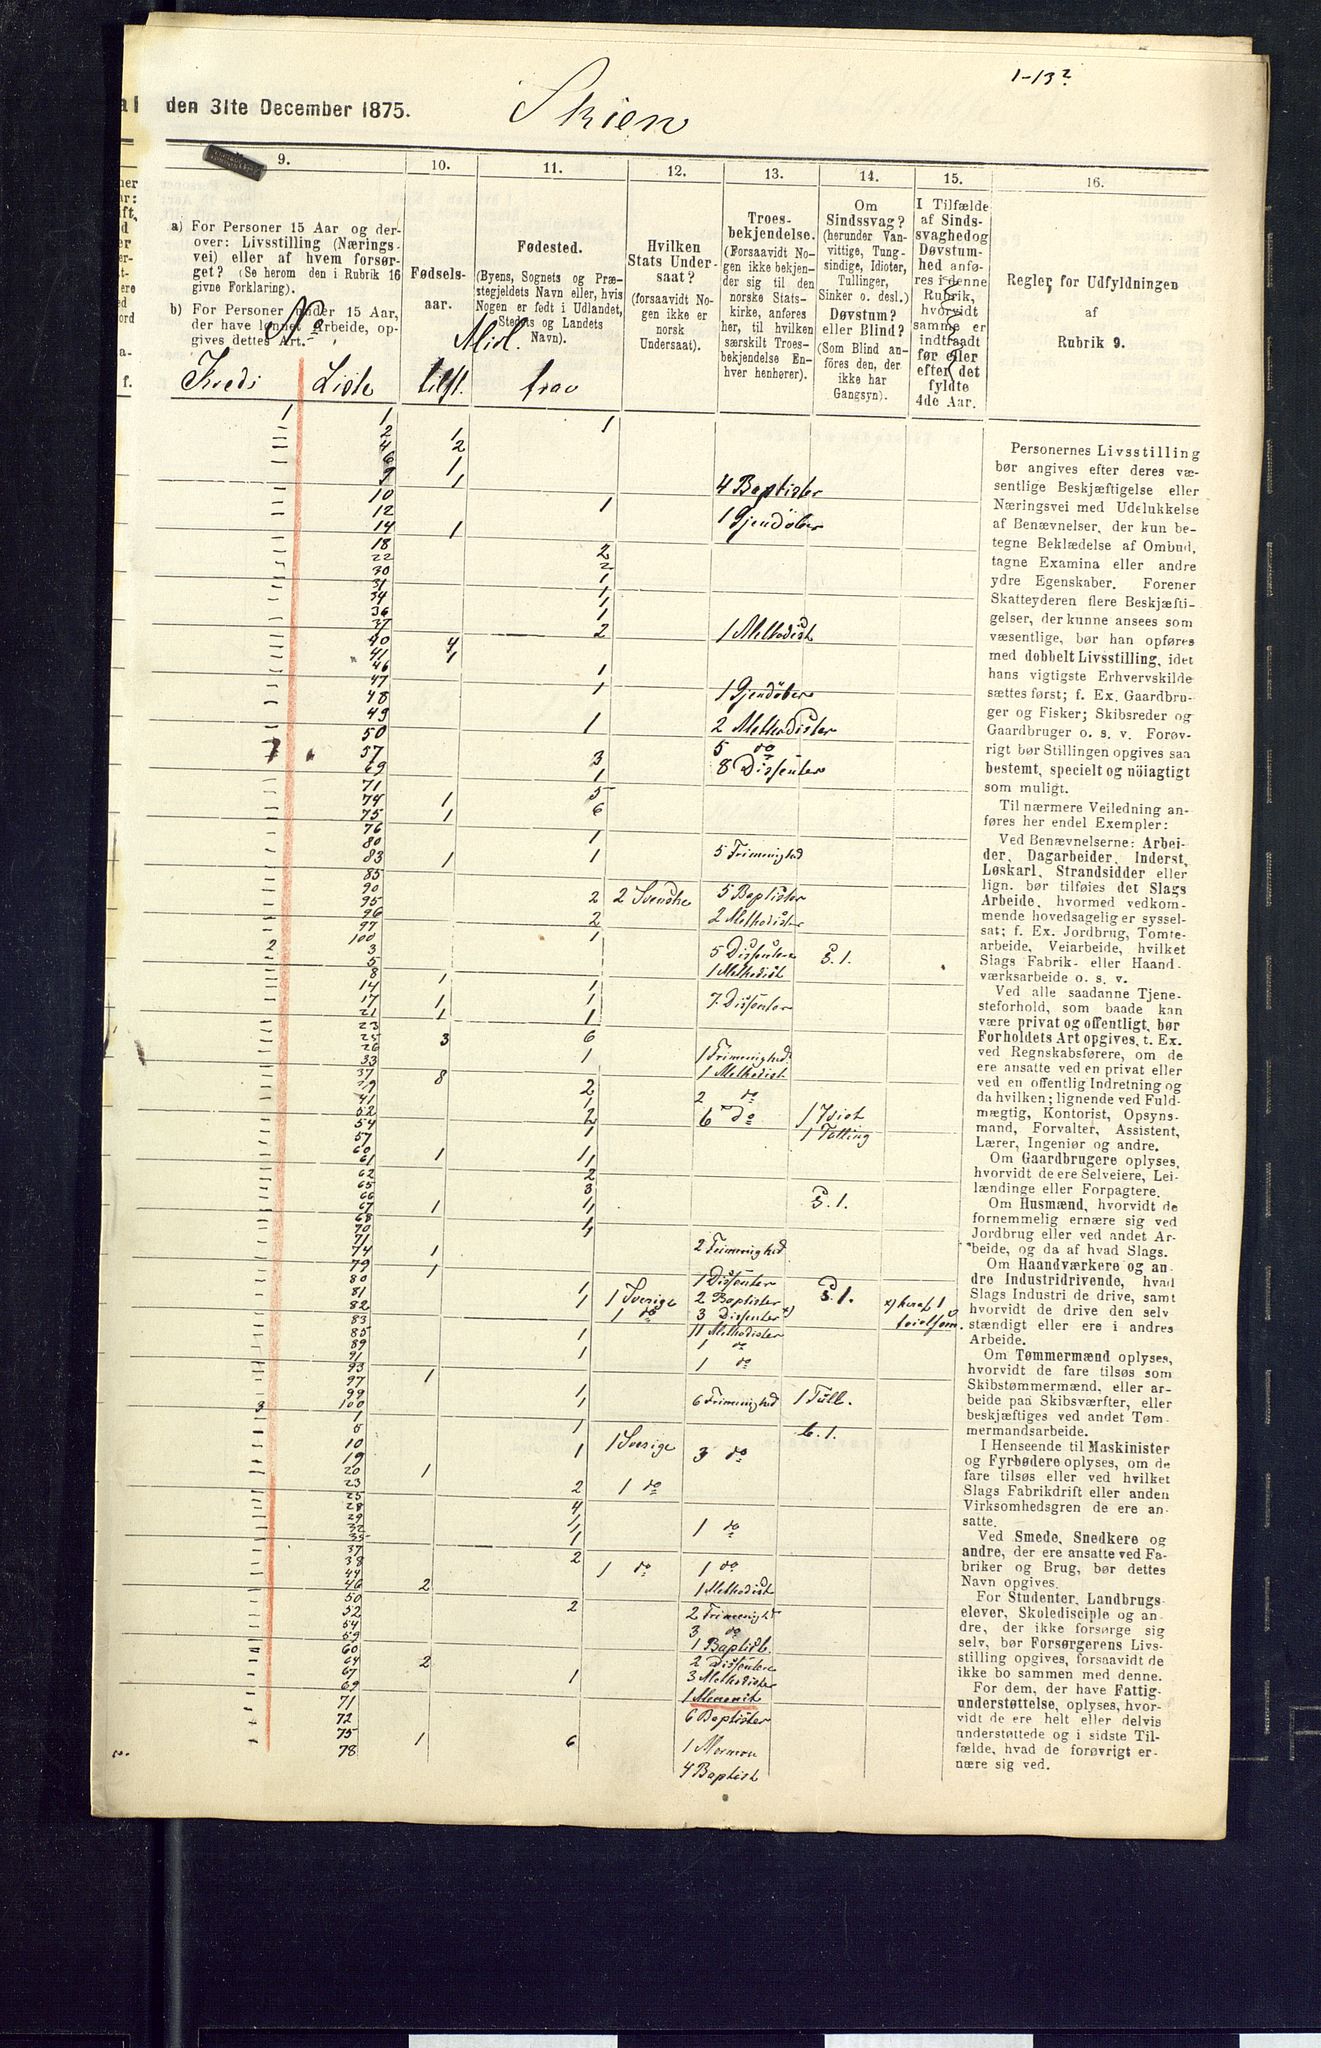 1-13?
den 31te December 1875.
Skien
9.
10.
11.
12.
13.
14.
15.
16.
a) For Personer 15 Aar og der-
over: Livsstilling (Nærings-
vei) eller af hvem forsør-
get? (Se herom den i Rubrik 16
givne Forklaring).
b) For Personer under 15 Aar,
der have lønnet Arbeide, op-
gives dettes Art.
Fødsels-
aar.
Fødested.
(Byens, Sognets og Præ-
stegjeldets Navn eller, hvis
Nogen er født i Udlandet,
Stedets og Landets
Navn).
Hvilken
Stats Under-
saat?
(forsaavidt No-
gen ikke er
norsk
Undersaat).
Troes-
bekjendelse.
(Forsaavidt No-
gen ikke bekjen-
der sig til den
norske Stats-
kirke, anføres
her, til hvilken
særskilt Troes-
bekjendelse En-
hver henhører).
Om
Sindssvag?
(herunder Van-
vittige, Tung-
sindige, Idioter,
Tullinger,
Sinker o. desl.)
Døvstum?
eller Blind?
(Som Blind an-
føres den, der
ikke har
Gangsyn).
I Tilfælde
af Sinds-
svaghed og
Døvstum-
hed anfø-
res i denne
Rubrik,
hvorvidt
samme er
indtraadt
før eller
efter det
fyldte
4de Aar.
Regler for Udfyldningen
af
Rubrik 9.
No
Midl.
Kreds
Liste
tilst.
frav
1 1 1
2 1
4 2
6 1
9 1 4 Baptister
10
12 1 1 Gjendøber
14 1
18 2
22 2
30 1
31 1
34 1
36 1
37 2 1 Methodist
40 4
41 1
46 1
47 1 1 Gjendøber
48
49 1 2 Methodister
50 5 do
57 3 8 Dissenter
69 1
71 5
74 1 6
75 1
76 1
80 1
83 1 5 Frimenighed
85
90 2 2 Svenske 5 Baptister
95
96 2 2 Methodister
97 1
100
2 3 5 Dissentere S. 1.
5 1 Methodist
8 1
14 1
17 1 1 7 Dissenter
21 1 1
23
25 3 6
26 1 1 Frimenighed
33 1 Methodist
37 8 2
39 1 2 do
41 2 6 do 1 Idiot
52 1 1 Tulling
54
57
60 1 1
61 1
62 2
65 3
66 1 S. 1.
67 1 1
68
70
71 2 Frimenighed
74 1
79 1 1 Dissenter
80 1 1 Sverige 2 Baptister S. 1.
81 1 1 do 3 Dissenter x)
82 11 Methodister
83 1 1 do
85 1
89 1 do
91
93 1
97 1
99 1 6 Frimenighed 1 Tull.
100
3 1 1 b. 1.
5 1 1 Sverige 3 do
10
19 1
20 2 1 do
23
25 4
28 1
29 1 1 do
32 1
35
37 2
38 1 do 1 do
44
46 2 1 Methodist
50 2 2 Frimenighed
52 3 do
54 1 Baptist
59
60 2 Dissentere
64 2 3 Methodister
67 1
69 1 Menonit
71 6 Baptister
72
75 1 6 1 Mormon
78 4 Baptist
Personernes Livsstilling
bør angives efter deres væ-
sentlige Beskjæftigelse eller
Næringsvei med Udelukkelse
af Benævnelser, der kun be-
tegne Beklædelse af Ombud,
tagne Examina eller andre
ydre Egenskaber. Forener
Skatteyderen flere Beskjæfti-
gelser, der kunne ansees som
væsentlige, bør han opføres
med dobbelt Livsstilling, idet
hans vigtigste Erhvervskilde
sættes først; f. Ex. Gaardbru-
ger og Fisker; Skibsreder og
Gaardbruger o. s. v. Forøv-
rigt bør Stillingen opgives saa
bestemt, specielt og nöiagtigt
som muligt.
Til nærmere Veiledning an-
føres her endel Exempler:
Ved Benævnelserne: Arbei-
der, Dagarbeider, Inderst,
Løskarl, Strandsidder eller
lign. bør tilføies det Slags
Arbeide, hvormed vedkom-
mende hovedsagelig er syssel-
sat; f. Ex. Jordbrug, Tomte-
arbeide, Veiarbeide, hvilket
Slags Fabrik- eller Haand-
værksarbeide o. s. v.
Ved alle saadanne Tjene-
steforhold, som baade kan
være privat og offentligt, bør
Forholdets Art opgives, t. Ex.
ved Regnskabsførere, om de
ere ansatte ved en privat eller
ved en offentlig Indretning og
da hvilken; lignende ved Fuld-
mægtig, Kontorist, Opsyns-
mand, Forvalter, Assistent,
Lærer, Ingeniør og andre.
Om Gaardbrugere oplyses,
hvorvidt de ere Selveiere, Lei-
lændinge eller Forpagtere.
Om Husmænd, hvorvidt de
fornemmelig ernære sig ved
Jordbrug eller ved andet Ar-
beide, og da af hvad Slags.
Om Haandværkere og an-
dre Industridrivende, hvad
Slags Industri de drive, samt
hvorvidt de drive den selv-
stændigt eller ere i andres
Arbeide.
Om Tømmermænd oplyses,
hvorvidt de fare tilsøs som
Skibstømmermænd, eller ar-
beide paa Skibsværfter, eller
beskjæftiges ved andet Tøm-
mermandsarbeide.
I Henseende til Maskinister
og Fyrbødere oplyses, om de
fare tilsøs eller ved hvilket
Slags Fabrikdrift eller anden
Virksomhedsgren de ere an-
satte.
Ved Smede, Snedkere og
andre, der ere ansatte ved Fa-
briker og Brug, bør dettes
Navn opgives.
For Studenter, Landbrugs-
elever, Skoledisciple og an-
dre, der ikke forsørge sig
selv, bør Forsørgerens Livs-
stilling opgives, forsaavidt de
ikke bo sammen med denne.
For dem, der have Fattig-
understøttelse, oplyses, hvor-
vidt de ere helt eller delvis
understøttede og i sidste Til-
fælde, hvad de forøvrigt er-
nære sig ved.